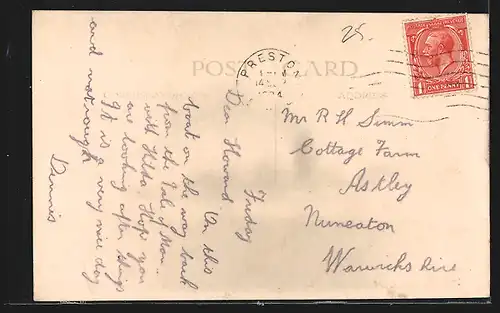 25.
POST CARD
PRESTON
ADDRESS
POSTAGE REVENUE
ONE PENNY
Friday
Dear Howard
On this
boat on the way back
from the Isle of Man.
with Hilda Hope you
are looking after things
It is a very nice day
and not rough
Dennis
Mr R H Simm
Cottage Farm
Astley
Nuneaton
Warwickshire